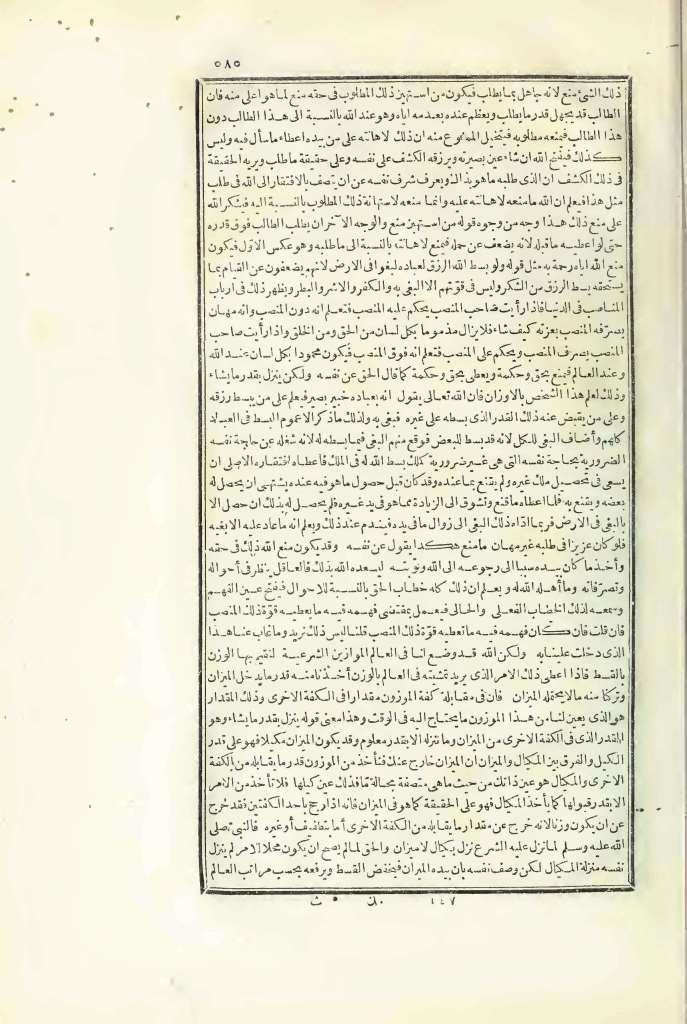 ٥٨٥
ذلك الشئ منع لانه جاهل بما يطلب فيكون من استهين ذلك المطلوب فى حقه منع لما هو اعلى منه فان
الطالب قد يجهل قدر ما يطلب ويعظم عنده بعدمه اياه وهو عند الله بالنسبة الى هذا الطالب دون
هذا الطالب فيمنعه مطلوبه فيتخيل الممنوع منه ان ذلك لاهانته على من بيده اعطاء ما سأل فيه وليس
كذلك فيفتح الله ان شاء عين بصيرته ويرزقه الكشف على نفسه وعلى حقيقة ما طلب ويريه الحقيقة
فى ذلك الكشف ان الذى طلبه ما هو بذاك ويعرف شرف نفسه عن ان يتصف بالافتقار الى الله فى طلب
مثل هذا فيعلم ان الله ما منعه لاهانته عليه وانما منعه لاستهانة ذلك المطلوب بالنسبة اليه فشكر الله
على منع ذلك هذا وجه من وجوه قوله من استهين منع والوجه الآخر ان يطلب الطالب فوق قدره
حتى لو اعطيه ما قبله لانه يضعف عن حمله فيمنع لاهانته بالنسبة الى ما طلبه وهو عكس الاول فيكون
منع الله اياه رحمة به مثل قوله ولو بسط الله الرزق لعباده لبغوا فى الارض لانهم يضعفون عن القيام بما
يستحقه بسط الرزق من الشكر وليس فى قوتهم الا البغى به والكفر والاشر والبطر ويظهر ذلك فى ارباب
المناصب فى الدنيا فاذا رأيت صاحب المنصب يحكم عليه المنصب فتعلم انه دون المنصب وانه مهان
يصرفه المنصب بعزته كيف شاء فلا يزال مذموما بكل لسان من الحق ومن الخلق واذا رأيت صاحب
المنصب يصرف المنصب ويحكم على المنصب فتعلم انه فوق المنصب فيكون محمودا بكل لسان عند الله
وعند العالم فيمنع بحق وحكمة ويعطى بحق وحكمة كما قال الحق عن نفسه ولكن ينزل بقدر ما يشاء
وذلك لعلم هذا الشخص بالاوزان فان الله تعالى يقول انه بعباده خبير بصير فيعلم على من يبسط رزقه
وعلى من يقبض عنه ذلك القدر الذى بسطه على غيره فبغى به ولذلك ما ذكر الا عموم البسط فى العباد
كلهم واضاف البغى للكل لانه قد بسط للبعض فوقع منهم البغى فيما بسطه له لانه شغله عن حاجة نفسه
الضرورية بحاجة نفسه التى هى غير ضرورية كملك بسط الله له فى الملك فاعطاه افتقاره الاصلى ان
يسعى فى تحصيل ملك غيره ولم يقنع بما عنده وقد كان قبل حصول ما هو فيه عنده يشتهى ان يحصل له
بعضه ويقنع به فلما اعطاه ما قنع وتشوق الى الزيادة مما هو فى يد غيره فلم يحصل له بذلك ان حصل الا
بالبغى فى الارض فربما اداه ذلك البغى الى زوال ما فى يده فيندم عند ذلك ويعلم انه ما عاد عليه الا بغيه
فلو كان عزيزا فى طلبه غير مهان ما منع هكذا يقول عن نفسه وقد يكون منع الله ذلك فى حقه
وأخذ ما كان بيده سببا الى رجوعه الى الله وتوبته ليسعده الله بذلك فالعاقل ينظر فى أحواله
وتصرفاته وما أهله الله له ويعلم ان ذلك كله خطاب الحق بالنسبة للاحوال فيفتح عين الفهم
وسمعه لذلك الخطاب الفعلى والحالى فيعمل بمقتضى فهمه فيه ما يعطيه قوة ذلك المنصب
فان قلت فان كان فهمه فيه ما تعطيه قوة ذلك المنصب قلنا ليس ذلك نريد وما غاب عنا هذا
الذى دخلت علينا به ولكن الله قد وضع لنا فى العالم الموازين الشرعية لنقيم بها الوزن
بالقسط فاذا اعطى ذلك الامر الذى يريد تمشيته فى العالم بالوزن أخذنا منه قدر ما يدخل الميزان
وتركنا منه ما لا يحتمله الميزان فان فى مقابلة كفة الموزون مقدارا فى الكفة الاخرى وذلك المقدار
هو الذى يعين لنا من هذا الموزون ما يحتاج اليه فى الوقت وهذا معنى قوله ينزل بقدر ما يشاء وهو
المقدر الذى فى الكفة الاخرى من الميزان وما ننزله الا بقدر معلوم وقد يكون الميزان مكيلا فهو على قدر
الكيل والفرق بين المكيال والميزان ان الميزان خارج عنك فتأخذ من الموزون قدر ما يقابله من الكفة
الاخرى والمكيال هو عين ذاتك من حيث ما هى متصفة بحالة ما فذلك عين كيلها فلا تأخذ من الامر
الا بقدر قبولها كما يأخذ المكيال فهو على الحقيقة كما هو فى الميزان فانه اذا رجح باحد الكفتين فقد خرج
عن ان يكون وزنا لانه خرج عن مقدار ما يقابله من الكفة الاخرى أما بتطفيف أو غيره فالنبى صلى
الله عليه وسلم لما نزل عليه الشرع نزل بمكيال لا ميزان والحق لما لم يصح ان يكون محلا للامر لم ينزل
نفسه منزلة المكيال لكن وصف نفسه بان بيده الميزان فيخفض القسط ويرفعه بحسب مراتب العالم
١٤٧ مك ث